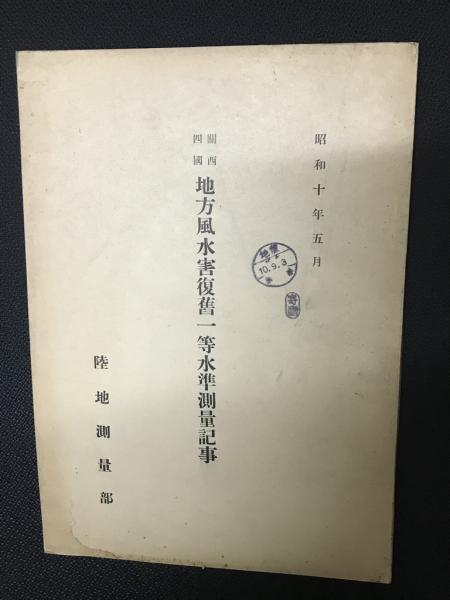 昭和十年五月
關西
四國
地方風水害復舊一等水準測量記事
陸地測量部
10.9.3
寄贈